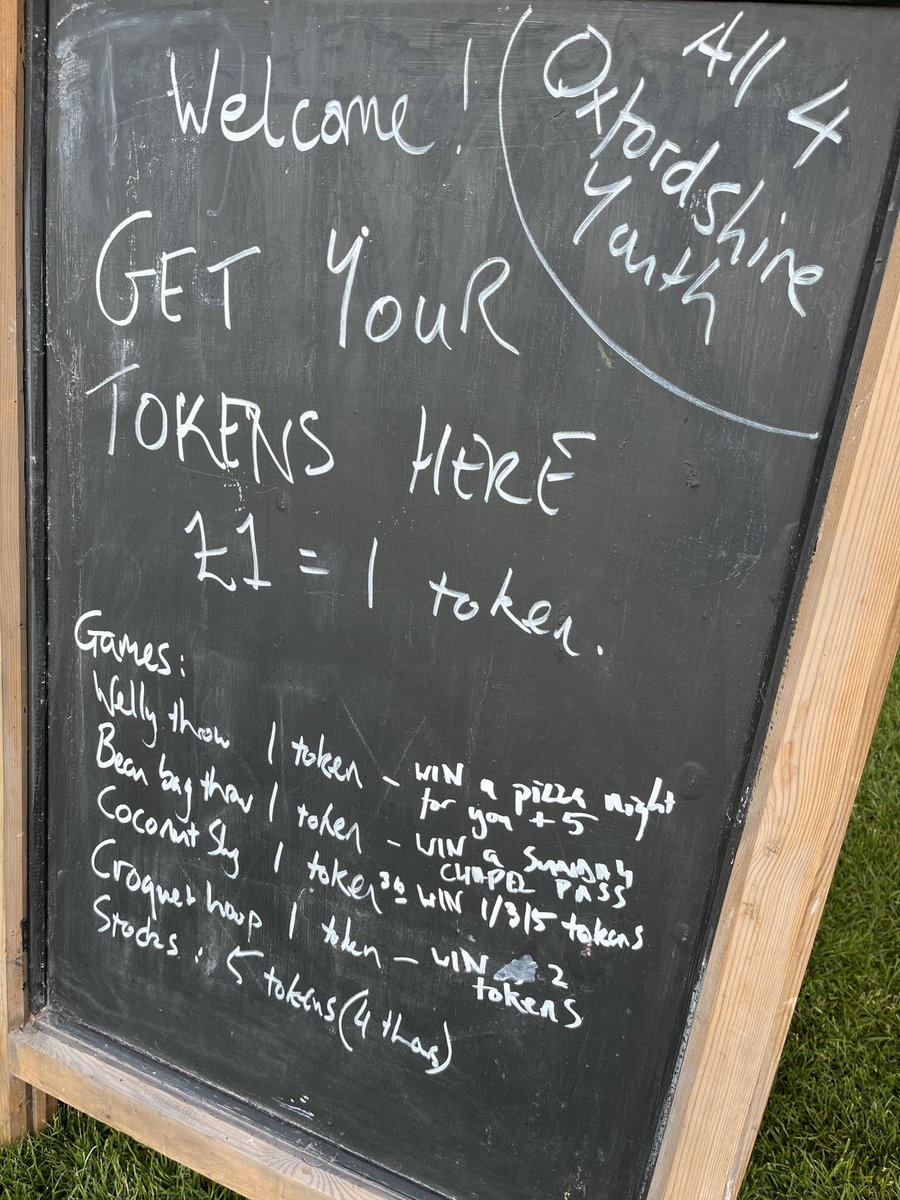 Welcome!
All 4
Oxfordshire
Youth
GET YOUR
TOKENS HERE
£1 = 1 token.
Games:
Welly throw 1 token - WIN a pizza night
for you + 5
Bean bag throw 1 token - WIN a Sunday
CHAPEL PASS
Coconut Shy 1 token - WIN 1/3/5 tokens
Croquet hoop 1 token - WIN 2
tokens
Stocks: 5 tokens (4 thos)